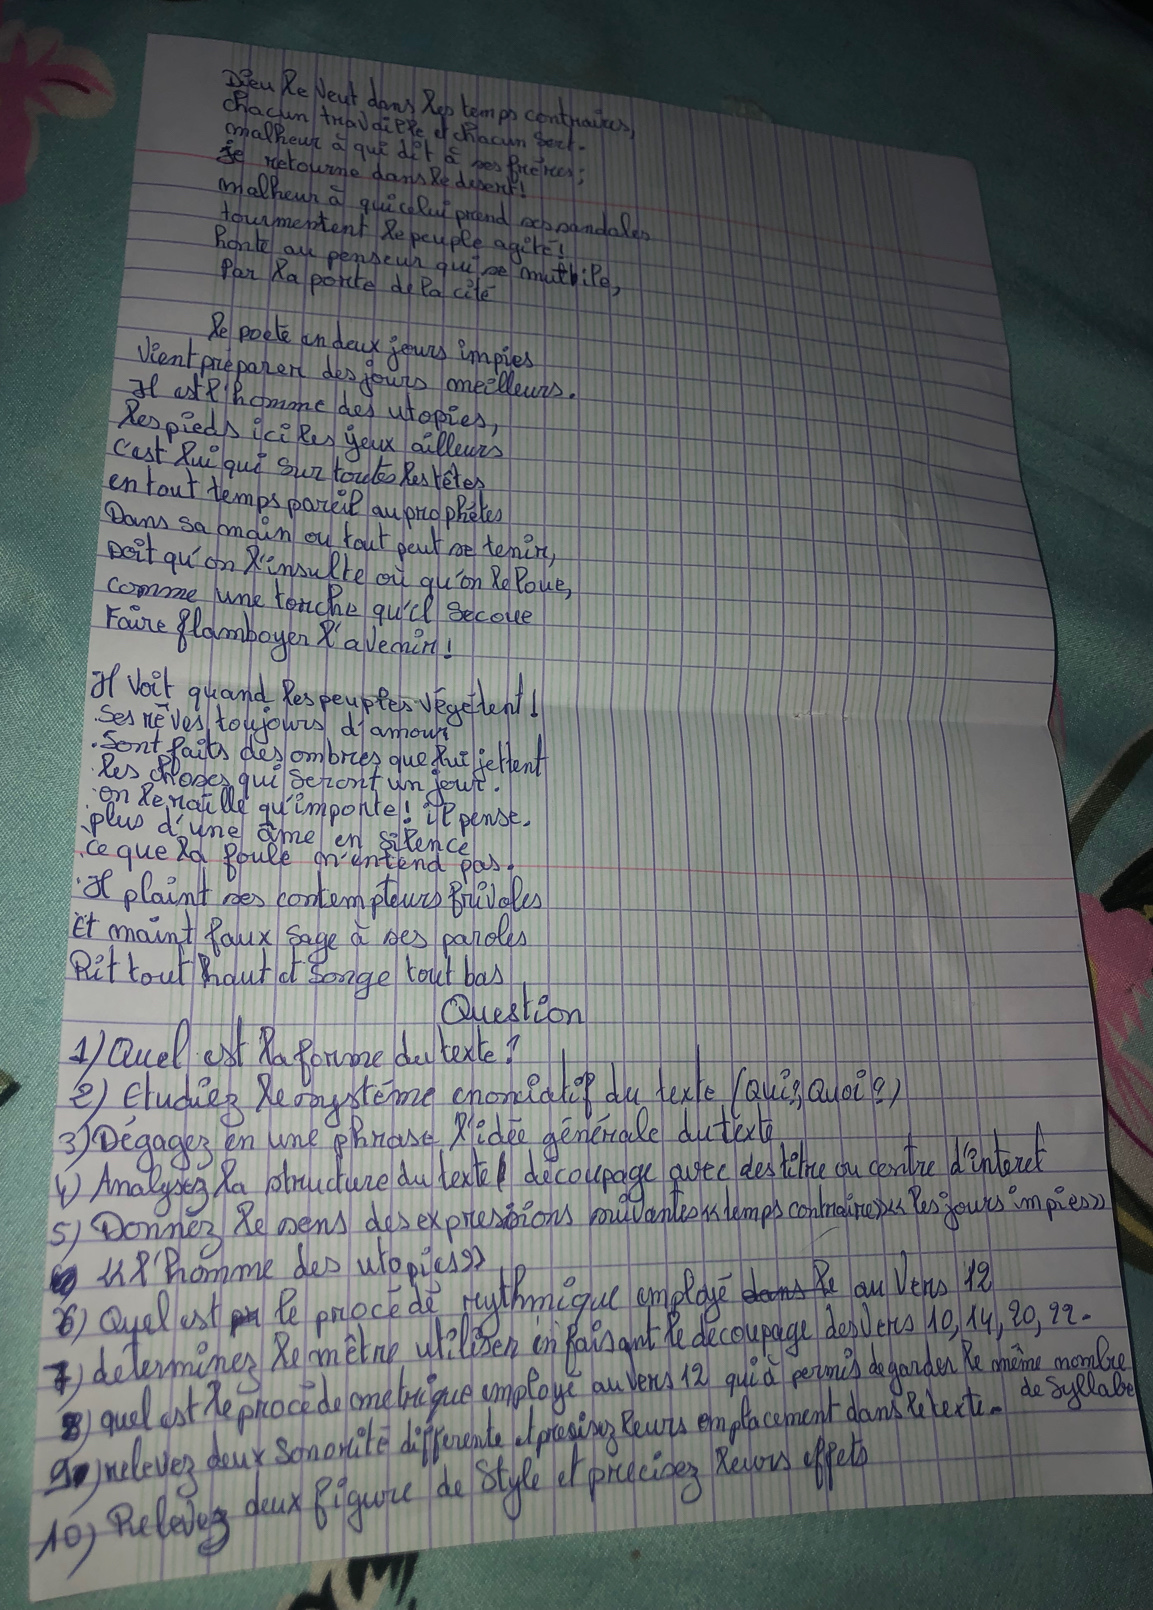 Dieu le veut dans les temps contraires,
chacun travaille et chacun sert.
malheur à qui dit à ses frères;
je retourne dans le désert!
malheur à qui celui prend ses sandales
tourmentent le peuple agité!
honte au penseur qui se mutbile,
Par la porte de la cité
le poete en deux jours impies
Vient préparer des jours meilleurs.
Il est l'homme des utopies,
les pieds ici les yeux ailleurs
c'est lui qui sur toutes les têtes
en tout temps pareil au prophètes
Dans sa main ou tout peut se tenir,
Doit qu'on l'insulte où qu'on le loue,
comme une torche qu'il secoue
Faire flamboyer l'avenir!
Il voit quand les peuples végètent!
Ses rêves toujours d'amour
Sont faits des ombres que lui jettent
les choses qui seront un jour.
on le raille qu'importe! il pense.
plus d'une âme en silence
ce que la foule n'entend pas.
Il plaint ses contempteurs frivoles
Et maint faux sage à ses paroles
Rit tout haut et songe tout bas
Question
1) Quel est la forme du texte?
2) Etudiez le système enonciatif du texte (Qui?, Quoi?)
3) Dégagez en une phrase l'idée générale du texte
4) Analysez la structure du texte découpage avec des titre ou centre d'interet
5) Donnez le sens des expressions suivantes «temps contraire» «les jours impies»
«l'homme des utopies»
6) Quel est le procédé rythmique employé dans le au Vers 12
7) determinez le mètre utiliser en faisant le decoupage des Vers 10, 14, 20, 22.
8) quel est le procède metrique employé au vers 12 qui à permis de garder le même nombre
de Syllabe
9) relevez deux Sonorité differente et presisez leurs emplacement dans le texte.
10) Relevez deux figure de Style et précisez leurs effets